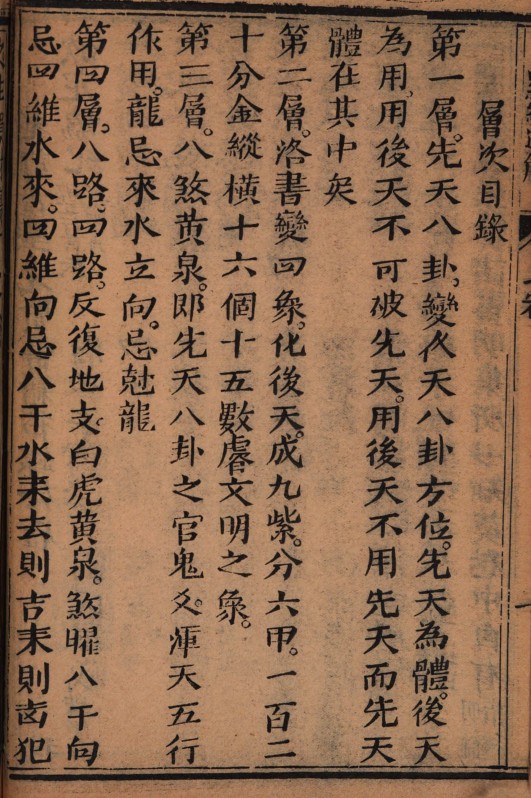 層次目錄
第一層。先天八卦。變後天八卦方位。先天為體。後天
為用。用後天不可破先天。用後天不用先天而先天
體在其中矣
第二層。洛書變四象。化後天。成九紫。分六甲。一百二
十分金縱橫十六個十五數。睿文明之象。
第三層。八煞黃泉。即先天八卦之官鬼爻。渾天五行
作用。龍忌來水立向。忌尅龍
第四層。八路。四路。反復地支。白虎黃泉。煞曜八干向
忌四維水來。四維向忌八干水來去則吉来則凶犯